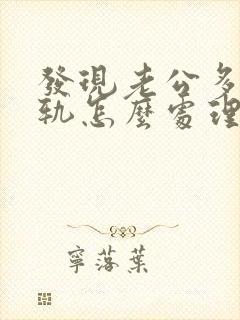 發現老公多
軌怎麼處理
寧落葉